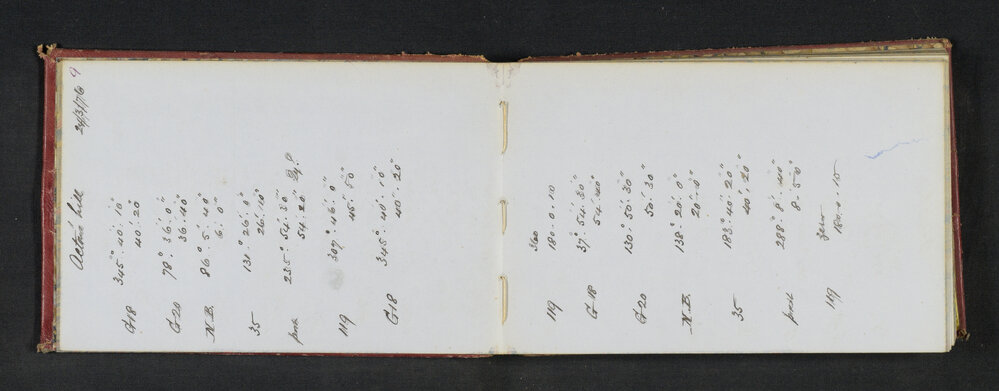 9
24/3/76
G18 345° 40' 10"
40. 20"
G20 78° 36' 0"
36. 40"
N.B. 86° 5' 40"
6' 0"
35 131° 26' 0"
26' 10"
54' 30"
119 307° 46' 0"
45' 50"
G18 345° 40' 10"
40' 20"
360
119 180. 0. 10
G18 37° 54' 30"
54' 40"
G20 130° 50' 30"
50' 30"
N.B. 138° 20' 0"
20' 0"
35 183° 40' 20"
40' 20"
288° 8' 40"
8. 50"
119 zero
180. 0. 15